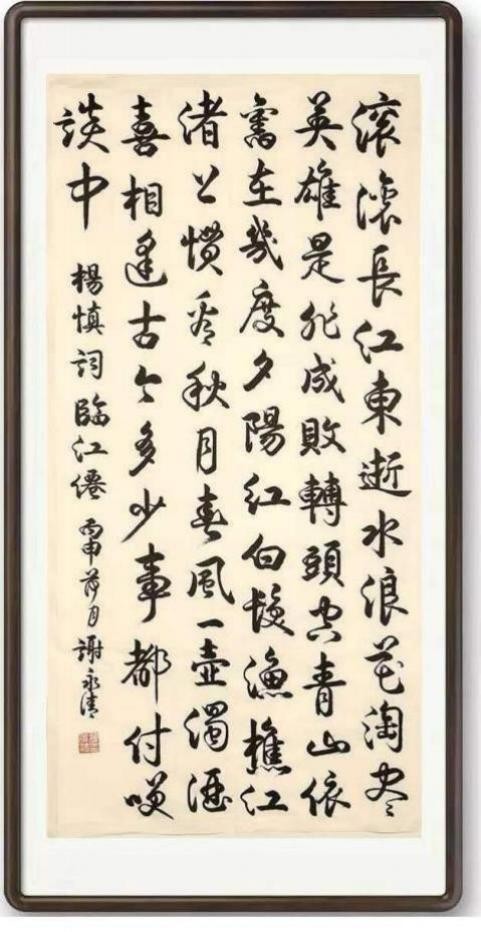 滚滚長江東逝水浪花淘盡
英雄是非成敗轉頭空青山依
舊在幾度夕陽紅白髮漁樵江
渚上慣看秋月春風一壺濁酒
喜相逢古今多少事都付咲
談中 楊慎詞臨江僊 丙申荷月 謝永清